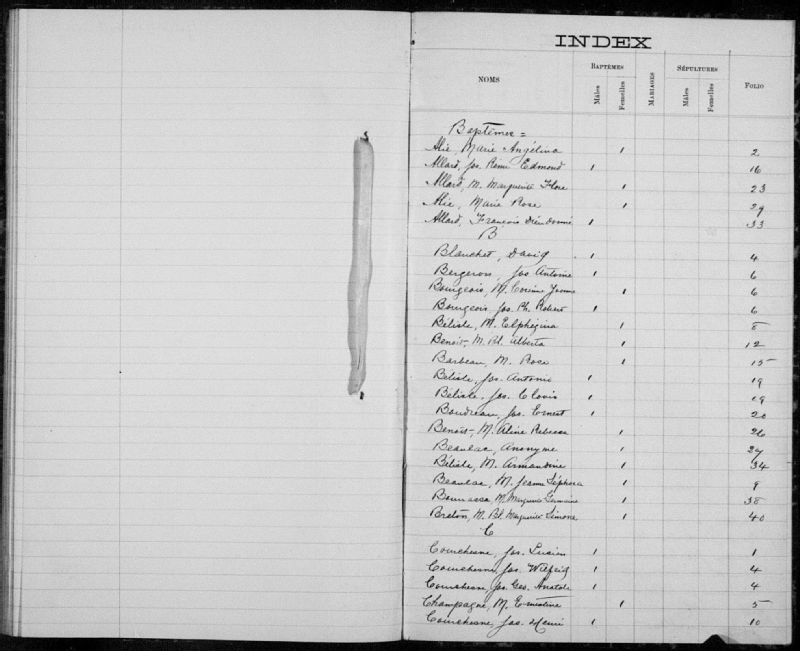 INDEX
NOMS BAPTÊMES MARIAGES SÉPULTURES FOLIO
Mâles Femelles Mâles Femelles
Baptêmes =
Alie, Marie Angélina 1 2
Allard, Jos. Rémi Edmond 1 16
Allard, M. Marguerite Flore 1 23
Alie, Marie Rose 1 29
Allard, François Dieudonné 1 33
B
Blanchet, David 1 4
Bergeron, Jos Antoine 1 6
Bourgeois, M. Corinne Yvonne 1 6
Bourgeois Jos. Ph. Robert 1 6
Bélisle, M. Elphégina 1 8
Benoit, M. Bl. Alberta 1 12
Barbeau, M. Rose 1 15
Bélisle, Jos. Antonio 1 19
Bélisle, Jos. Clovis 1 19
Boudreau, Jos. Ernest 1 20
Benoit, M. Aline Rebecca 1 26
Beaulac, Anonyme 1 27
Bélisle, M. Armandine 1 34
Beaulac, M. Jeanne Séphora 1 9
Bourassa, M. Marguerite Germaine 1 38
Breton, M. Bl. Marguerite Simone 1 40
C
Courchesne, Jos. Lucien 1 1
Courchesne, Jos. Wilfrid 1 4
Courchesne, Jos. Geo. Anatole 1 4
Champagne, M. Ernestine 1 5
Courchesne, Jos. Henri 1 10